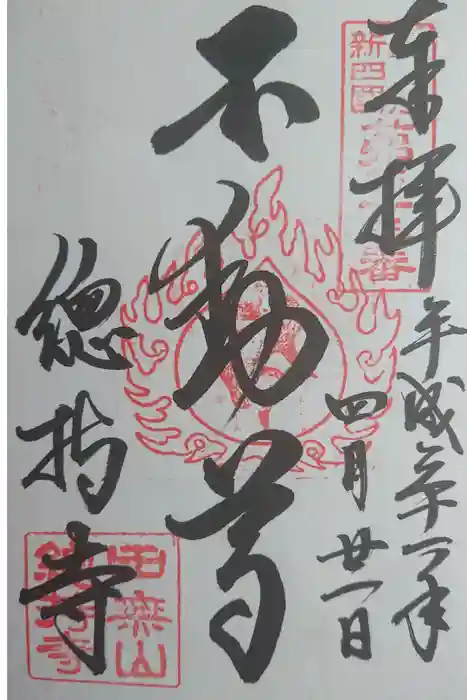 奉拝
新四国
平成三十一年
四月廿一日
不動尊
總持寺
田無山
總持寺